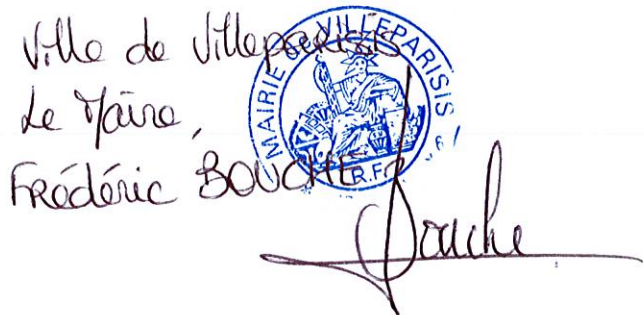 Ville de Villeparisis
Le Maire,
Frédéric BOUCHE
MAIRIE de VILLEPARISIS
R.F.
Bouche